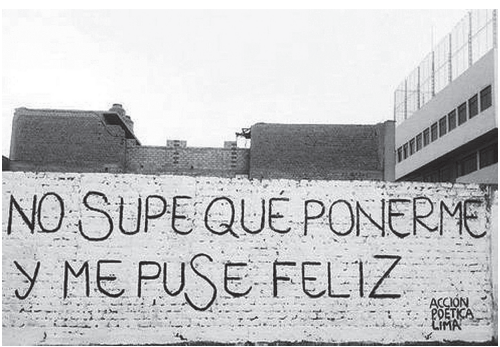 NO SUPE QUÉ PONERME
Y ME PUSE FELIZ
ACCIÓN
POÉTICA
LIMA